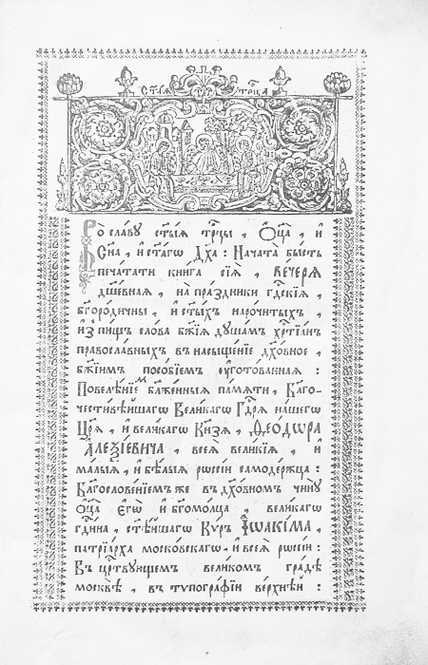 Ст҃а́ѧ трⷪ҇ца
Во сла́ву ст҃ы́ѧ трⷪ҇цы, Ѻ҆ц҃а̀, и҆
Сн҃а, и҆ ст҃а́гѡ Дх҃а: Нача́та бы́сть
печа́тати кни́га сїѧ̀, ве́черѧ
дш҃е́внаѧ, на пра́здники гдⷭ҇кїѧ,
бг҃оро́дичны, и҆ ст҃ы́хъ наро́читыхъ,
и҆з̾ пи́щъ сло́ва бж҃їѧ дꙋша́мъ хрⷭ҇тїѧ́нъ
правосла́вныхъ въ насыще́нїе дꙋхо́вное,
бж҃їимъ посо́бїемъ ᲂу҆гото́ваннаѧ:
Повелѣ́нїемъ блаже́нныѧ па́мѧти, Благо-
чести́вѣйшагѡ Вели́кагѡ Гдⷭ҇рѧ на́шегѡ
Цр҃ѧ̀, и҆ вели́кагѡ Кнѧ́зѧ, Ѳео́дѡра
Алеѯі́евича, всеѧ̀ вели́кїѧ, и҆
ма́лыѧ, и҆ бѣ́лыѧ рѡссі́и самоде́ржца:
Благослове́нїемъ же въ дх҃о́вномъ чи́нꙋ
Ѻ҆ц҃а̀ Е҆гѡ̀ и҆ бг҃омо́лца, вели́кагѡ
гдⷭ҇и́на, ст҃ѣ́йшагѡ Кѵ́ръ І҆ѡакі́ма,
патрїа́рха моско́вскагѡ, и҆ всеѧ̀ рѡссі́и:
Въ црⷭ҇твꙋющемъ вели́комъ гра́дѣ
москвѣ̀, въ тѵпогра́фїи ве́рхнѣй: